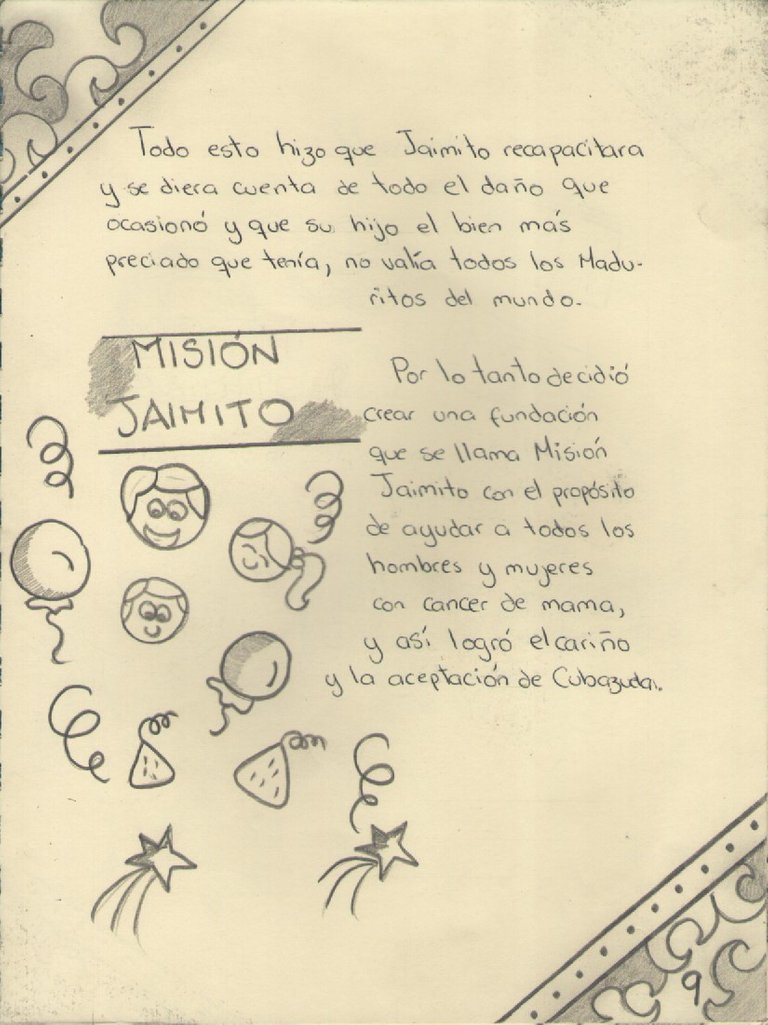 Todo esto hizo que Jaimito recapacitara
y se diera cuenta de todo el daño que
ocasionó y que su hijo el bien más
preciado que tenía, no valía todos los Madu-
ritos del mundo.
MISIÓN
JAIMITO
Por lo tanto decidió
crear una fundación
que se llama Misión
Jaimito con el propósito
de ayudar a todos los
hombres y mujeres
con cancer de mama,
y así logró el cariño
y la aceptación de Cubazuela.
9